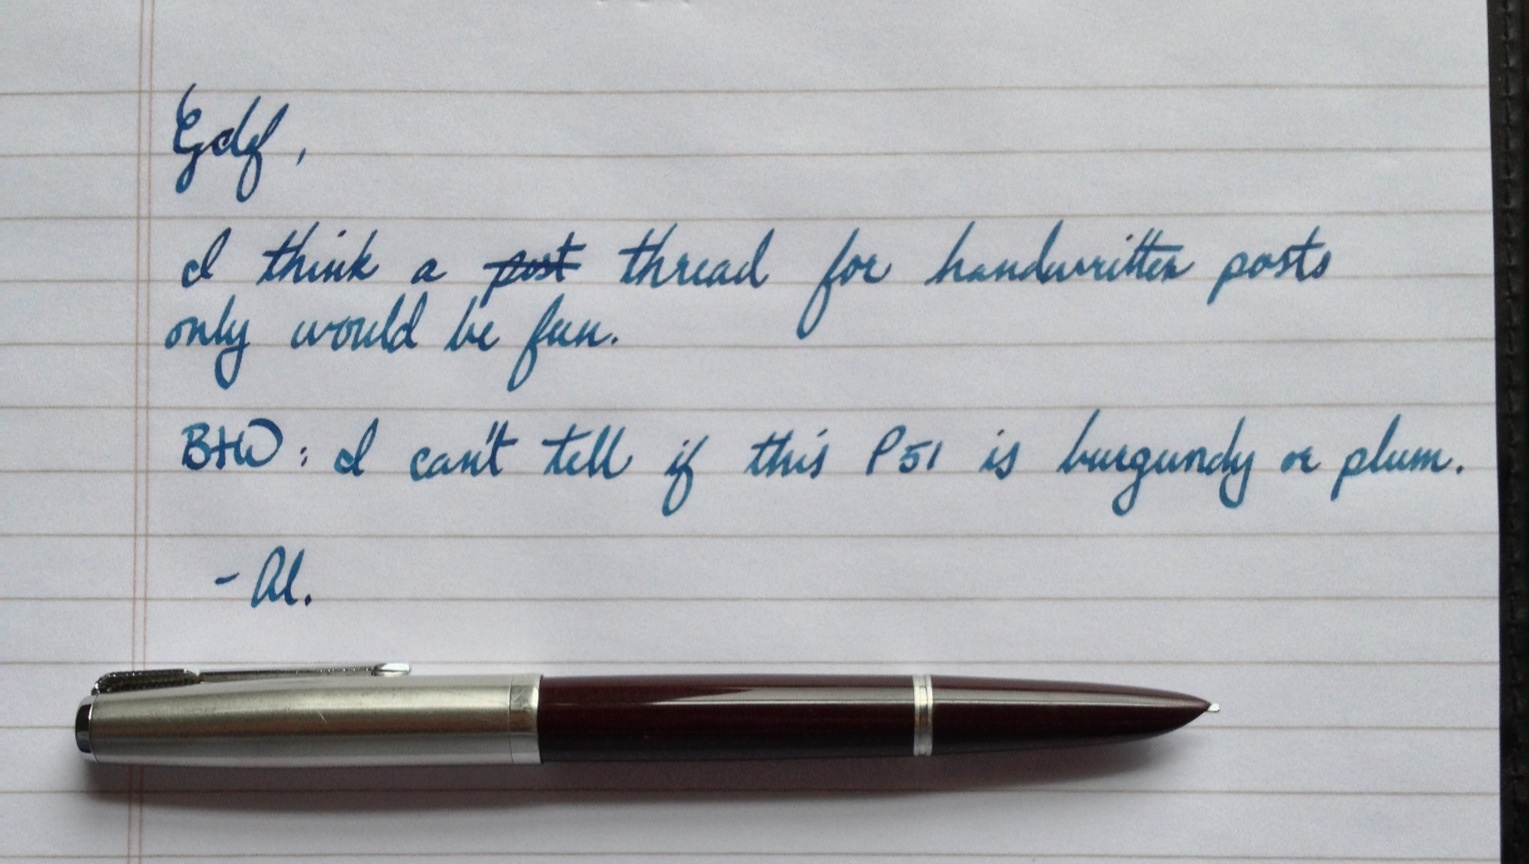 Gdf,
I think a post thread for handwritten posts
only would be fun.
BTW: I can't tell if this P51 is burgundy or plum.
- Al.